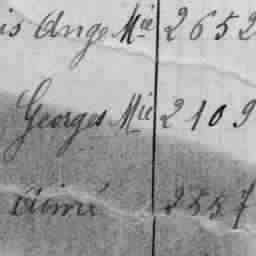 is Ange Mie 2652
Georges Mie 2109
Aimé 2557